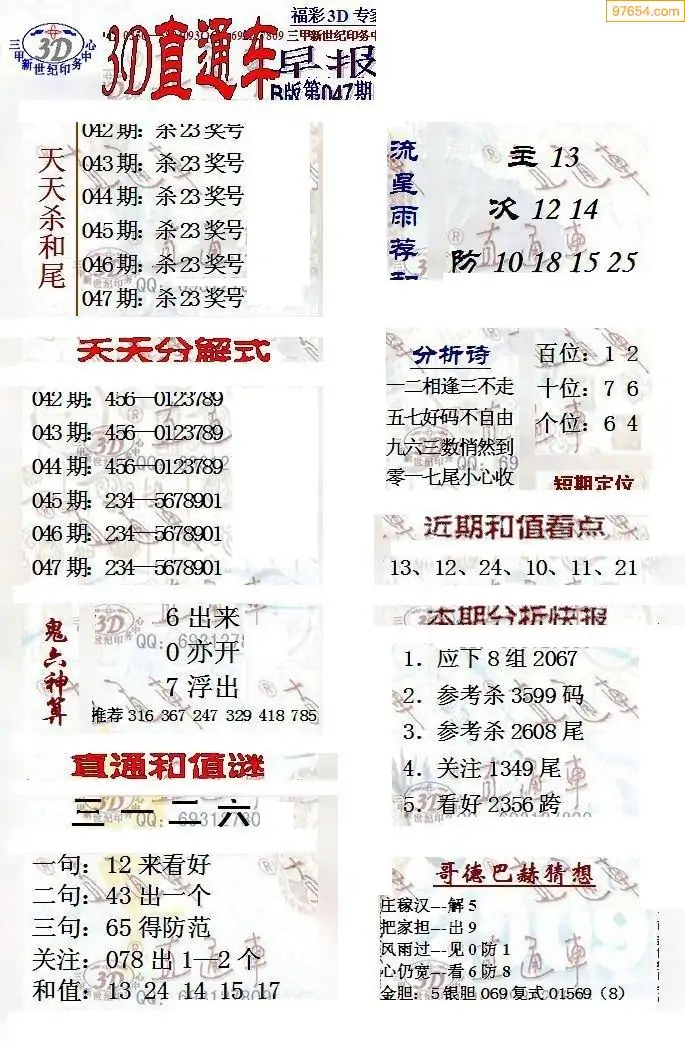 97654.com
福彩3D 专家
三甲新世纪印务中心
3D
3D直通车
早报
B版第047期
天天杀和尾
042期：杀23奖号
043期：杀23奖号
044期：杀23奖号
045期：杀23奖号
046期：杀23奖号
047期：杀23奖号
流星雨荐和
主 13
次 12 14
防 10 18 15 25
天天分解式
042期：456—0123789
043期：456—0123789
044期：456—0123789
045期：234—5678901
046期：234—5678901
047期：234—5678901
分析诗
一二相逢三不走
五七好码不自由
九六三数悄然到
零一七尾小心收
百位：1 2
十位：7 6
个位：6 4
短期定位
近期和值看点
13、12、24、10、11、21
鬼六神算
6出来
0亦开
7浮出
推荐 316 367 247 329 418 785
本期分析快报
1．应下8组2067
2．参考杀3599码
3．参考杀2608尾
4．关注1349尾
5．看好2356跨
直通和值谜
三一二六
一句：12来看好
二句：43出一个
三句：65得防范
关注：078出1—2个
和值：13 24 14 15 17
哥德巴赫猜想
庄稼汉---解5
把家担---出9
风雨过---见0防1
心仍宽---看6防8
金胆：5银胆069复式01569（8）